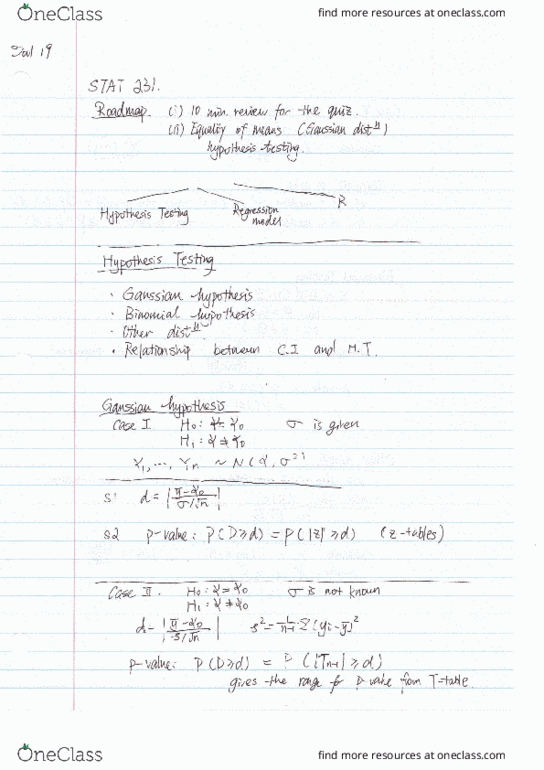 OneClass
find more resources at oneclass.com
Jul 19
STAT 231.
Roadmap. (i) 10 min. review for the quiz.
(ii) Equality of means (Gaussian distⁿ)
hypothesis testing.
Hypothesis Testing
Regression model
R
Hypothesis Testing
· Gaussian hypothesis
· Binomial hypothesis
· Other distⁿ
· Relationship between C.I and H.T.
Gaussian hypothesis
Case I. H₀: γ = γ₀ σ is given
H₁: γ ≠ γ₀
Y₁, ..., Yn ~ N(γ, σ²)
S1 d = |ȳ-γ₀ / σ/√n|
S2 p-value: P(D≥d) = P(|Z| ≥d) (z-tables)
Case II. H₀: γ = γ₀ σ is not known
H₁: γ ≠ γ₀
d = |ȳ-γ₀ / s/√n| s² = 1/n-1 Σ(yi-ȳ)²
p-value: P(D≥d) = P(|Tn-1| ≥ d)
gives the range for p value from T-table.
OneClass
find more resources at oneclass.com